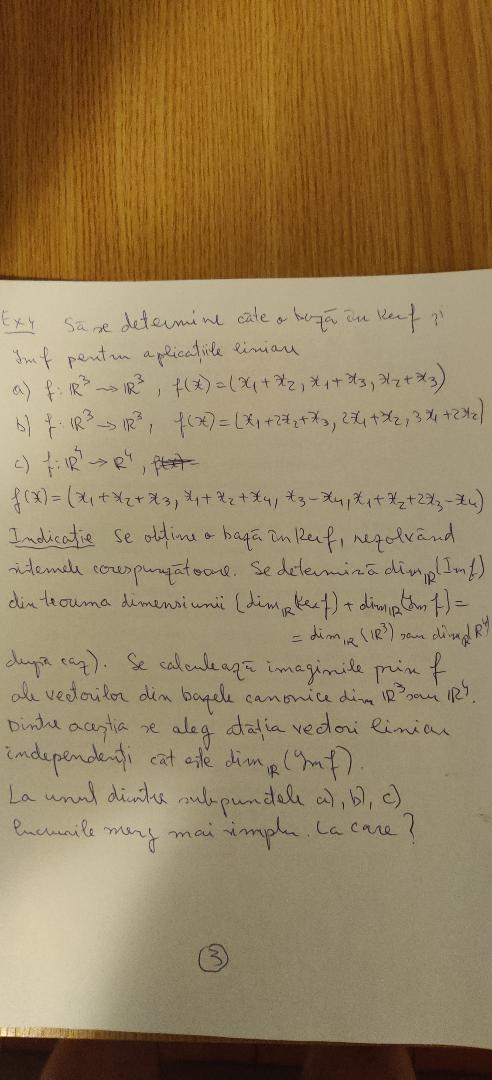 Ex4 Să se determine câte o bază în Kerf și
Imf pentru aplicațiile liniare
a) f: ℝ³ → ℝ³, f(x)=(x₁+x₂, x₁+x₃, x₂+x₃)
b) f: ℝ³ → ℝ³, f(x)=(x₁+2x₂+x₃, 2x₁+x₂, 3x₁+2x₂)
c) f: ℝ⁴ → ℝ⁴, f(x)=
f(x)=(x₁+x₂+x₃, x₁+x₂+x₄, x₃-x₄, x₁+x₂+2x₃-x₄)
Indicație Se obține o bază în Kerf, rezolvând
sistemele corespunzătoare. Se determină dim_ℝ(Imf)
din teorema dimensiunii (dim_ℝ(Kerf)+dim_ℝ(Imf)=
= dim_ℝ(ℝ³) sau dim_ℝ(ℝ⁴)
după caz). Se calculează imaginile prin f
ale vectorilor din bazele canonice din ℝ³ sau ℝ⁴.
Dintre aceștia se aleg atația vectori liniar
independenți cât este dim_ℝ(Imf).
La unul dintre subpunctele a), b), c)
lucrurile merg mai simplu. La care?
3